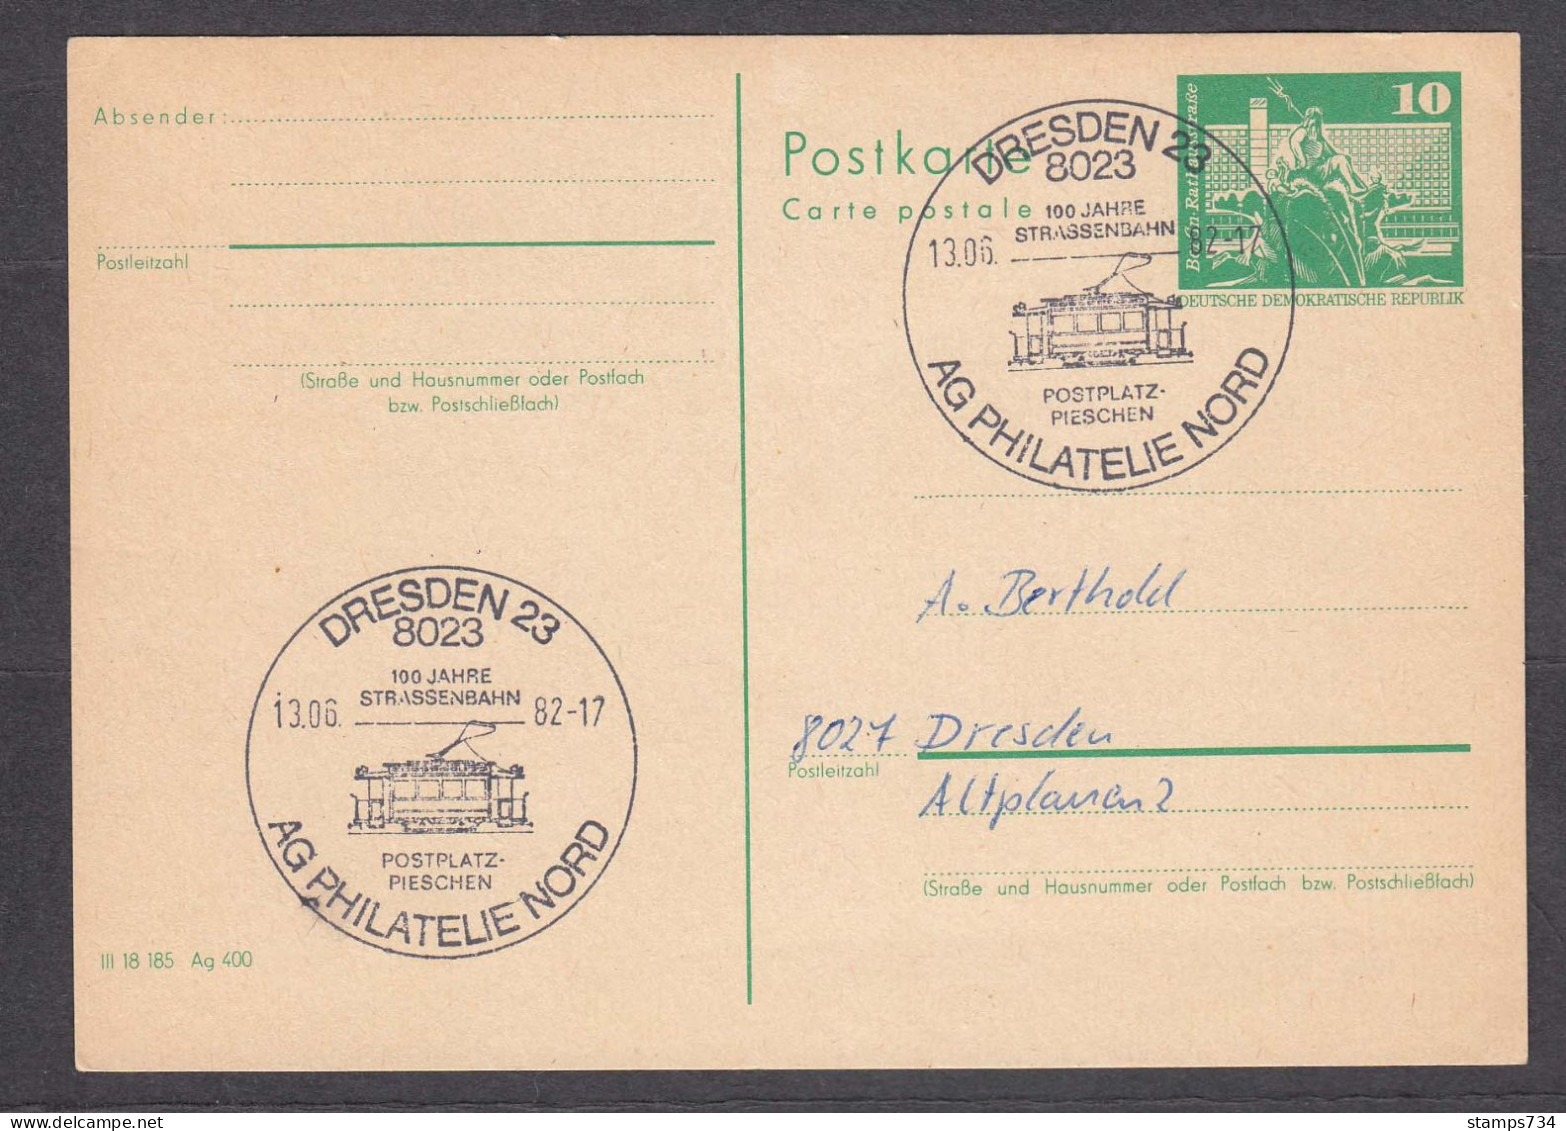 Absender:
Postleitzahl
(Straße und Hausnummer oder Postfach
bzw. Postschließfach)
DRESDEN 23
8023
100 JAHRE
STRASSENBAHN
13.06. 82-17
POSTPLATZ-
PIESCHEN
AG PHILATELIE NORD
III 18 185 Ag 400
Postkarte
Carte postale
10
Berlin·Rathausstraße
DEUTSCHE DEMOKRATISCHE REPUBLIK
DRESDEN 23
8023
100 JAHRE
STRASSENBAHN
13.06. 82-17
POSTPLATZ-
PIESCHEN
AG PHILATELIE NORD
A. Berthold
8027 Dresden
Postleitzahl
Altplauen 2
(Straße und Hausnummer oder Postfach bzw. Postschließfach)
stamps734